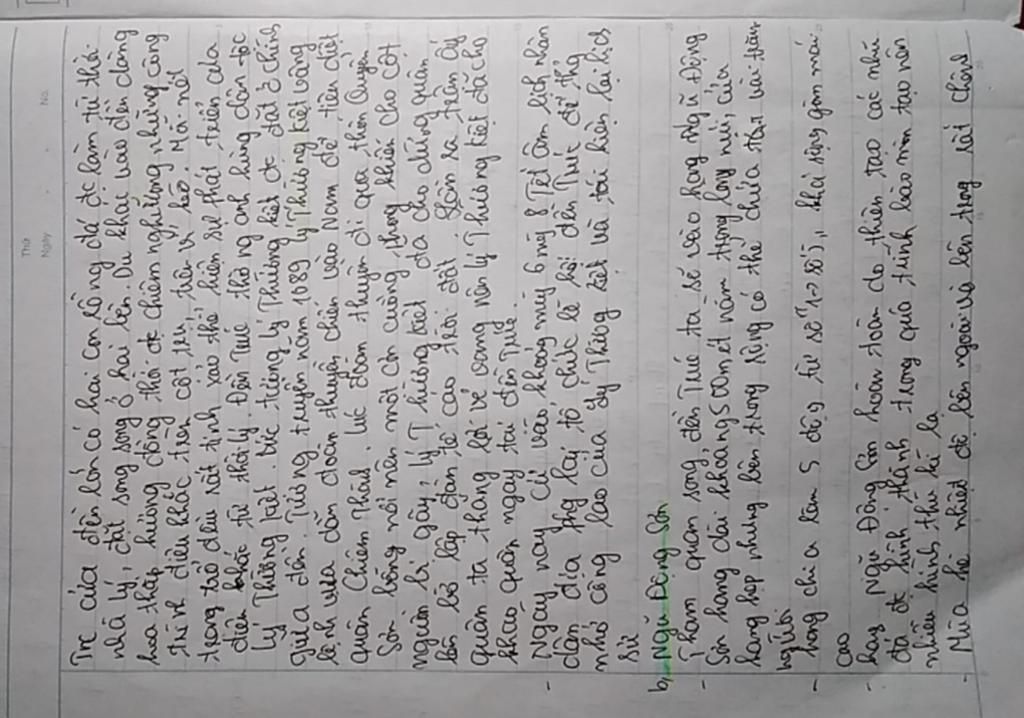 Thứ
Ngày
No.
Trc cửa đền lớn có hai con rồng đá đc làm từ thời
nhà lý, đặt song song ở hai bên. Du khách vào đền dâng
hoa thắp hương đồng thời đc chiêm ngưỡng những công
trình điêu khắc trên cột trụ, trên vì kèo. Mỗi nét
trang trí đều rất tinh xảo thể hiện sự phát triển của
điêu khắc từ thời lý. Đền Trúc thờ ng anh hùng dân tộc
Lý Thường Kiệt. Bức tượng Lý Thường Kiệt đc đặt ở chính
giữa đền. Tương truyền năm 1089 lý Thường Kiệt vâng
lệnh vua dẫn đoàn thuyền chiến vào Nam để tiêu diệt
quân Chiêm Thành. Lúc đoàn thuyền đi qua thôn Quyển
Sơn bỗng nổi nên một cơn cuồng phong khiến cho cột
nguồm bị gãy, lý Thường Kiệt đã cho dừng quân
lên bờ lập đàn tế cáo trời đất. Hôm ra trận ấy
quân ta thắng lợi vẻ vang nên lý Thường Kiệt đã cho
khao quân ngay tại đền Trúc.
- Ngày nay cứ vào khoảng mùng 6 mùng 8 Tết âm lịch nhân
dân địa phg lại tổ chức lễ hội đền Trúc để thg
nhớ công lao của Lý Thường Kiệt và tái hiện lại lịch
sử
b, Ngũ Động Sơn
- Tham quan xong đền Trúc ta sẽ vào hang Ngũ Động
Sơn hang dài khoảng 500 mét nằm trong lòng núi, cửa
hang hẹp nhưng bên trong rộng có thể chứa tới vài trăm
người
- hang chia làm 5 động từ số "1 -> số 5, khá rộng, gồm mái
cao
- hang Ngũ Động Sơn hoàn toàn do thiên tạo các nhũ
đá đc hình thành trong quá trình bào mòn tạo nên
nhiều hình thù kì lạ
- Mùa hè nhiệt độ bên ngoài và bên trong rất chênh